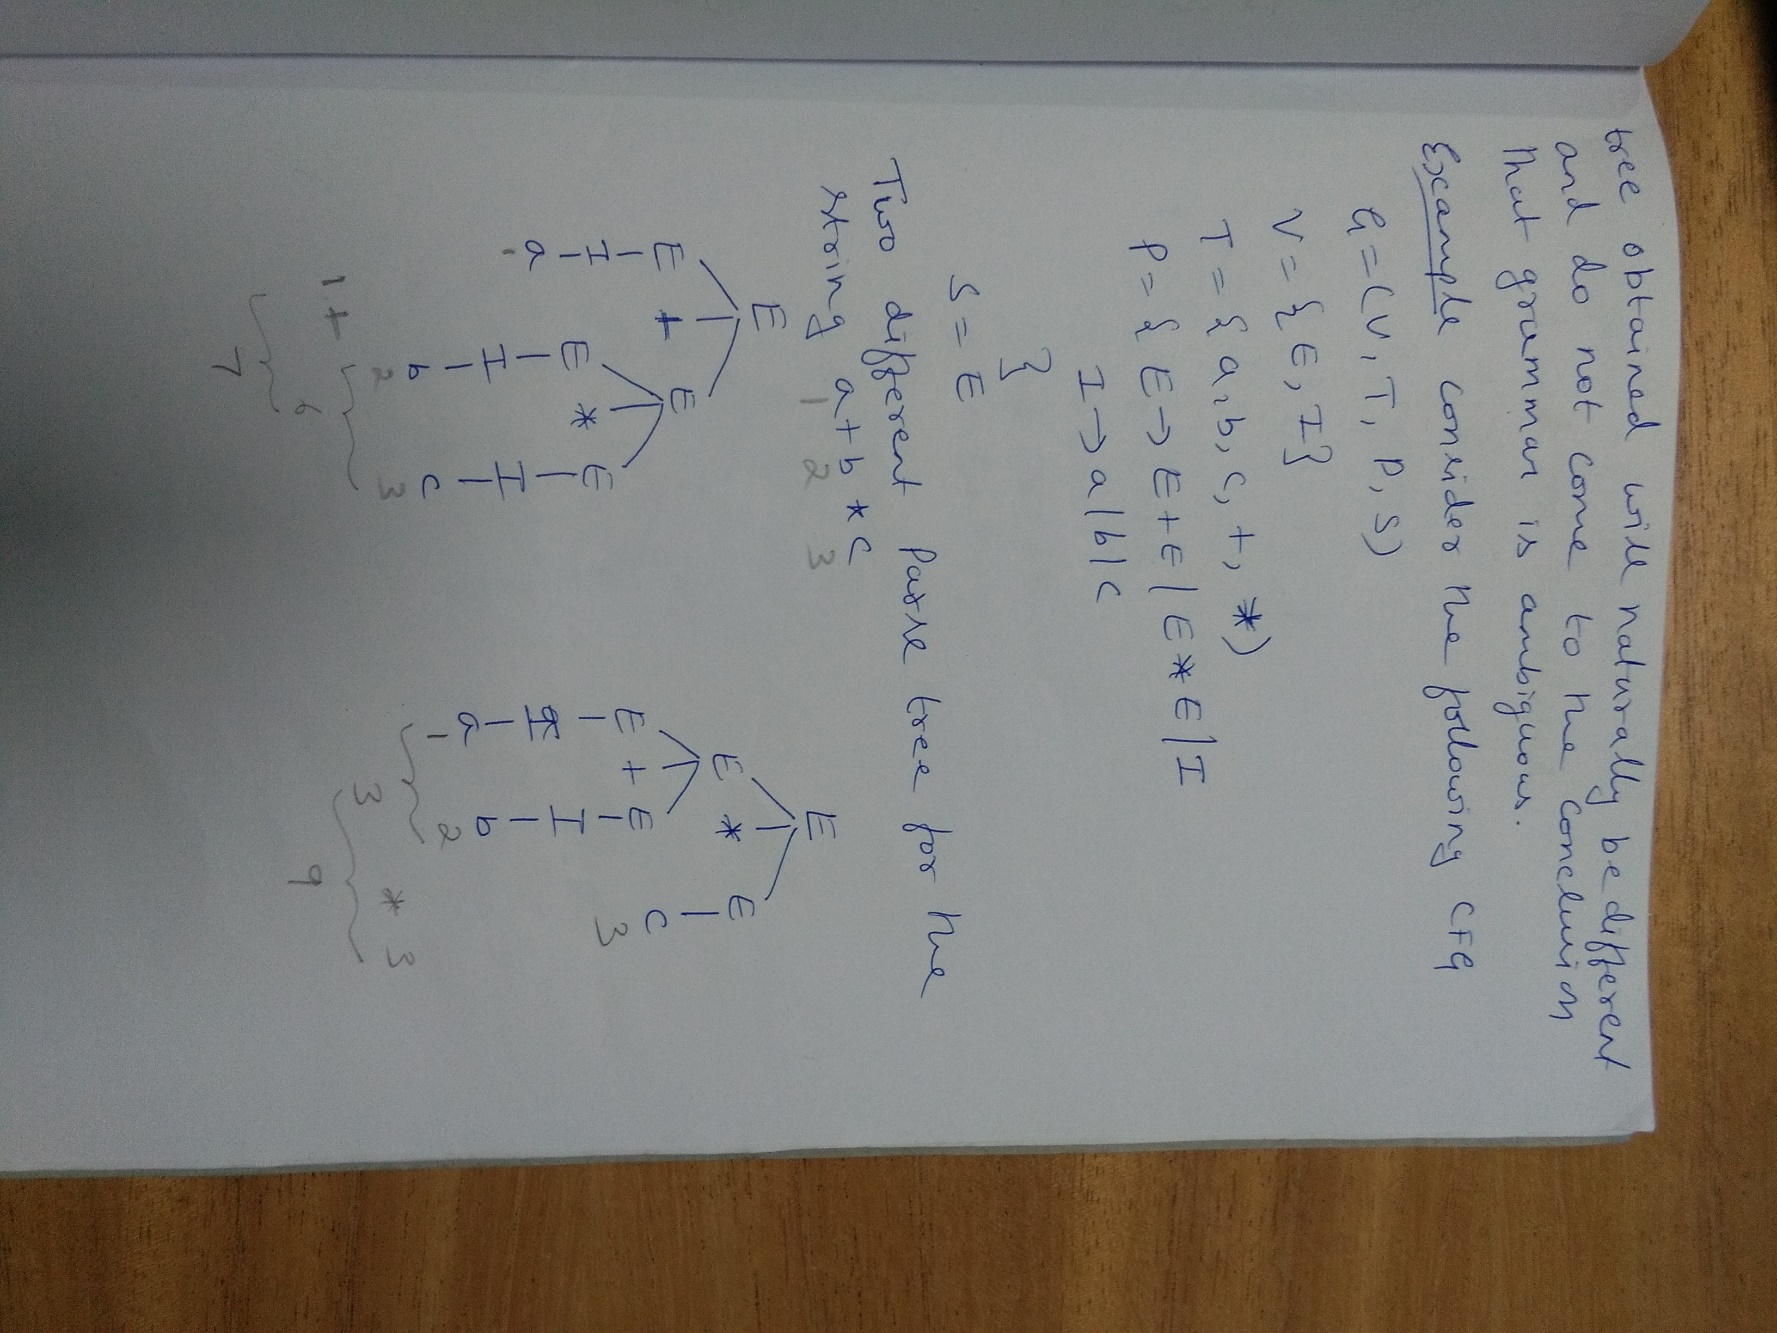 tree obtained will naturally be different
and do not come to the conclusion
that grammar is ambiguous.
Example consider the following CFG
G = (V, T, P, S)
V = { E, I }
T = { a, b, c, +, * )
P = { E → E + E | E * E | I
I → a | b | c
}
S = E
Two different Parse tree for the
string a + b * c
1 2 3
E E
E + E E * E
I E * E E + E c
a I I I I 3
1 b c a b
2 3 1 2
1 + 6 3 * 3
7 9